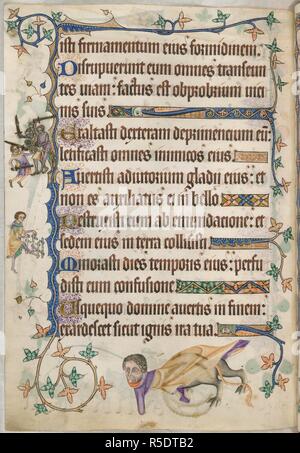 isti firmamentum eius formidinem:
Diripuerunt eum omnes transeun
tes uiam: factus est obprobrium uici
nis suis
Exaltasti dexteram deprimencium eu͞:
letificasti omnes inimicos eius
Auertisti adiutorium gladii eius: et
non es auxiliatus ei in bello
Destruxisti eum ab emundacione: et
sedem eius in terra collisisti
Minorasti dies temporis eius: perfu
disti eum confusione
Usquequo domine auertis in finem:
exardescet sicut ignis ira tua
alamy
Image ID: R5DTB2
www.alamy.com